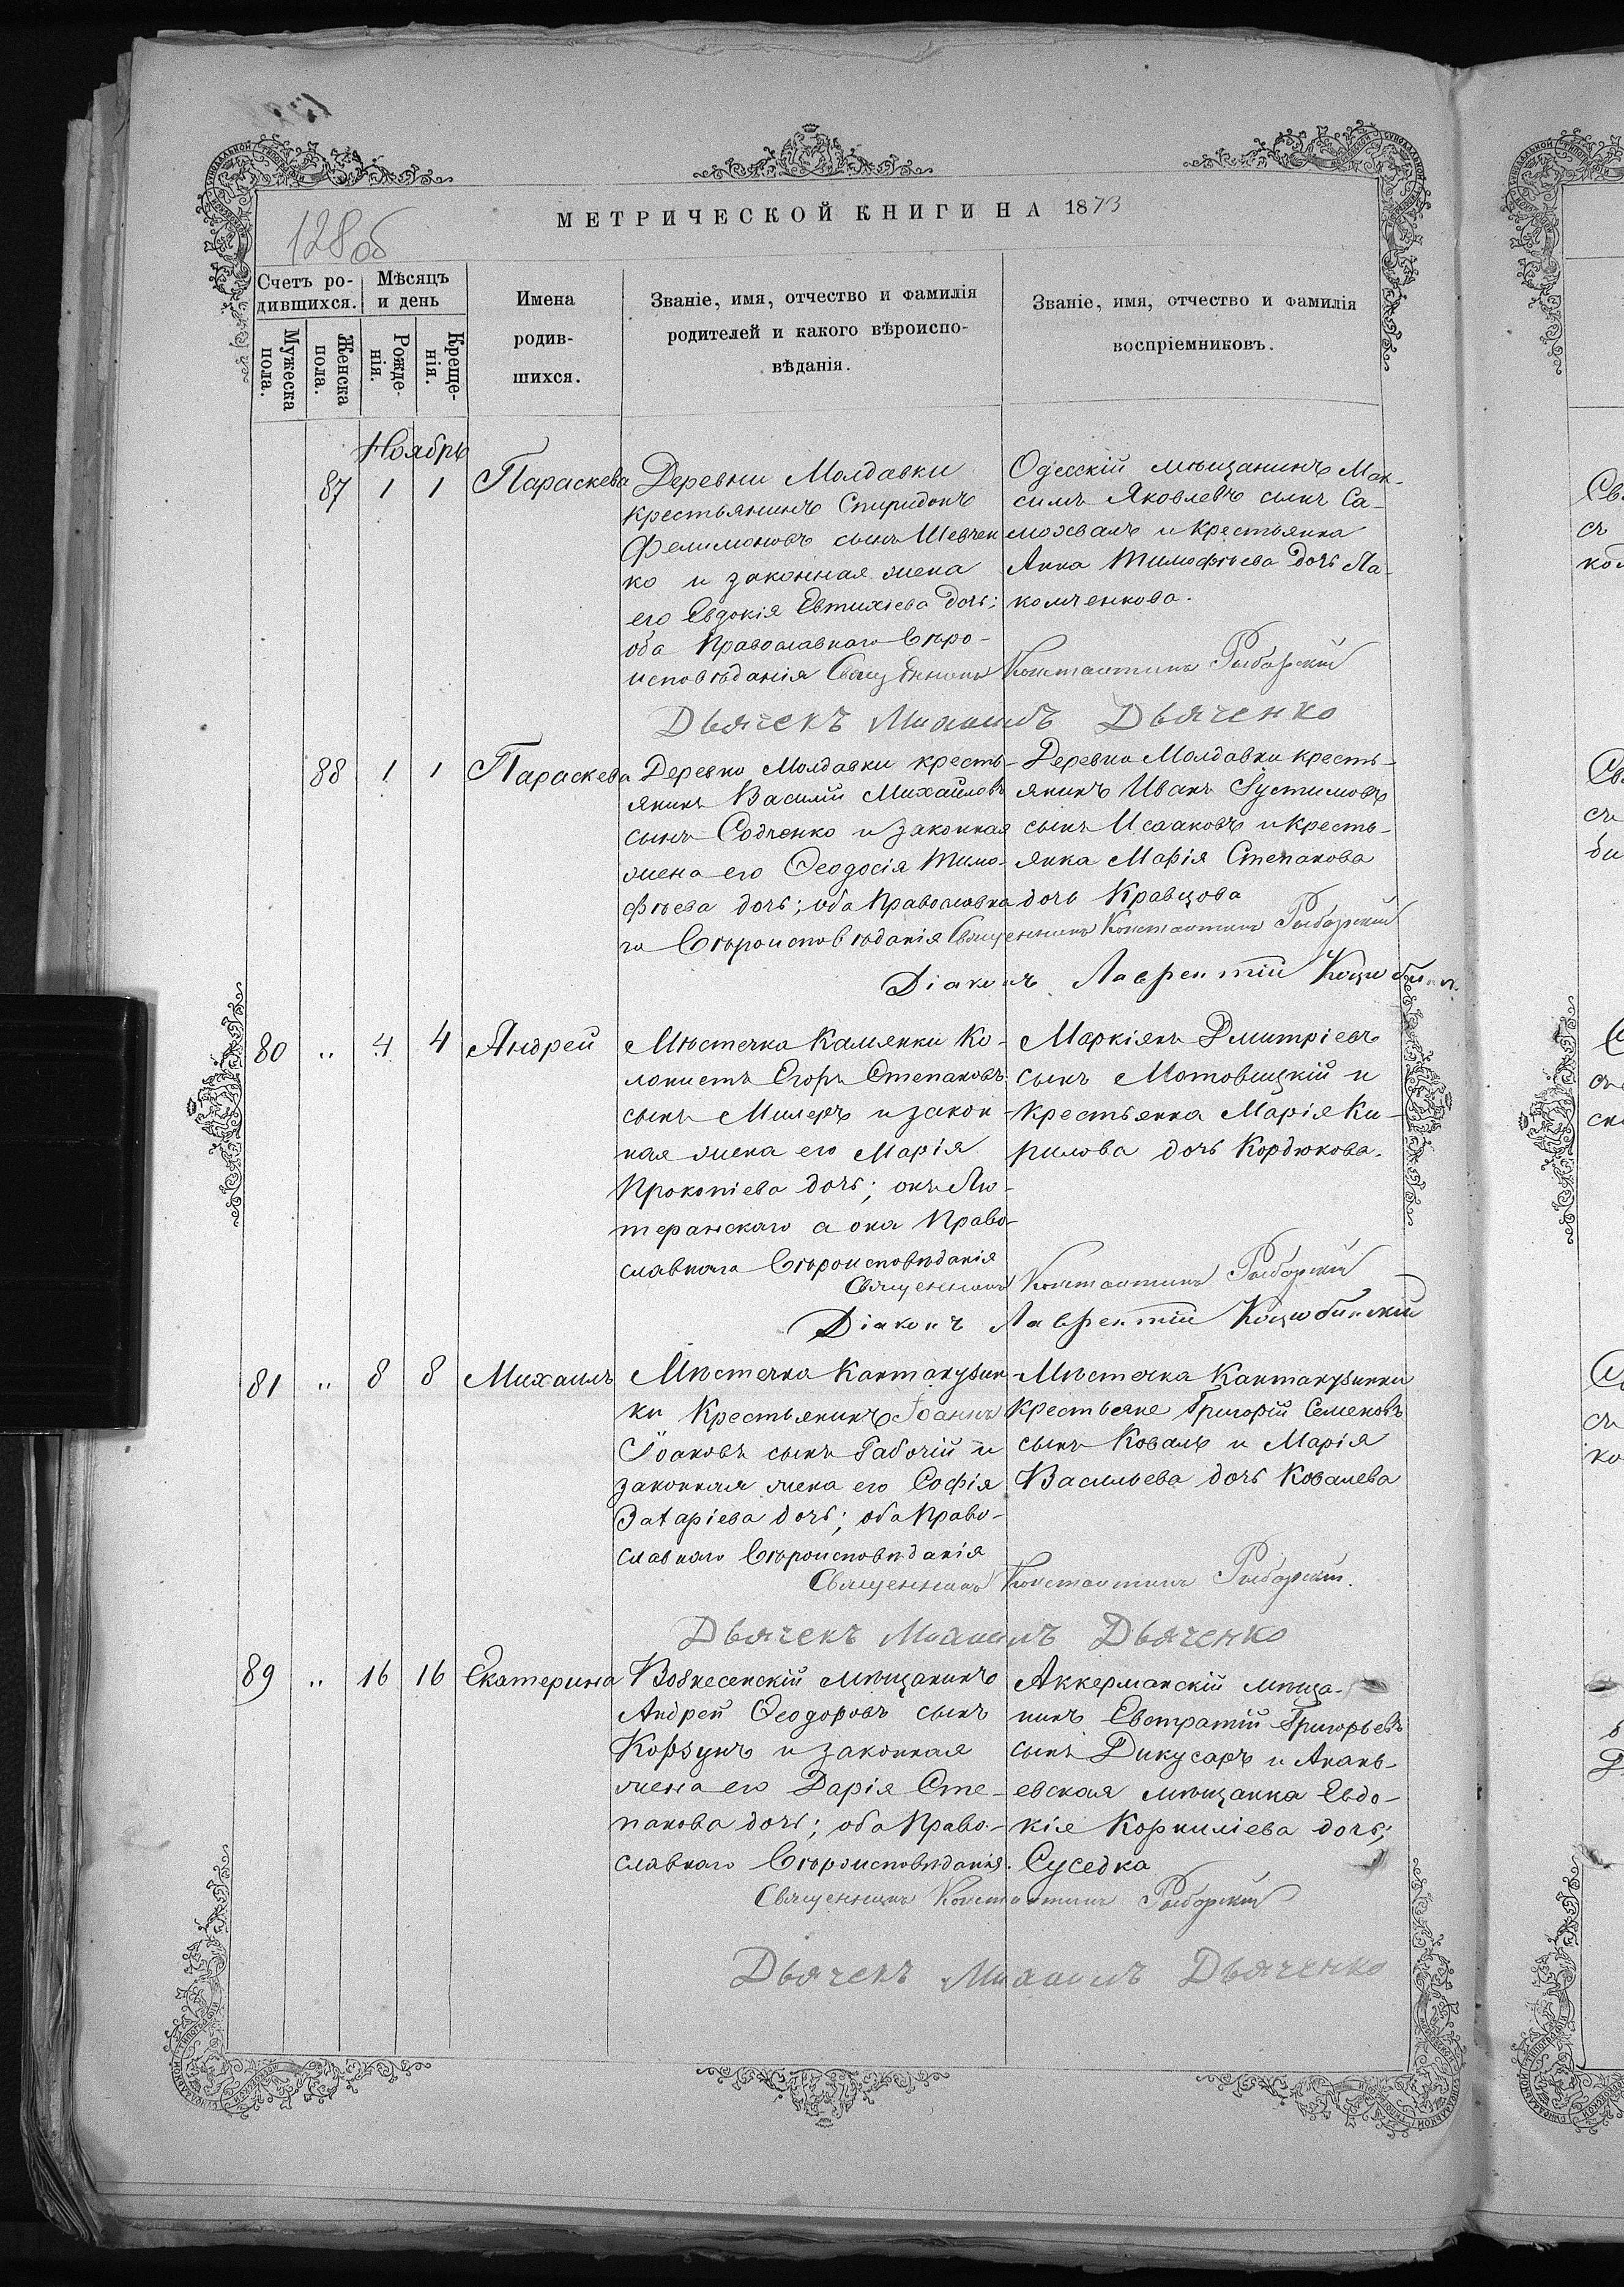 128об
МЕТРИЧЕСКОЙ КНИГИ НА 1873
Счетъ ро-
дившихся.
Мѣсяцъ
и день
Мужеска
пола.
Женска
пола.
Рожде-
нія.
Креще-
нія.
Имена
родив-
шихся.
Званіе, имя, отчество и фамилія
родителей и какого вѣроиспо-
вѣданія.
Званіе, имя, отчество и фамилія
воспріемниковъ.
Ноябрь
87 1 1 Параскева
Деревни Молдавки
крестьянинъ Спиридонъ
Филимоновъ сынъ Шевчен
ко и законная жена
его Евдокія Евтихіева дочь;
оба Православнаго Вѣро-
исповѣданія
Одесскій мѣщанинъ Мак-
симъ Яковлевъ сынъ Са-
мохвалъ и крестьянка
Анна Тимофѣева дочь Па-
комченкова.
Священникъ Константинъ
Дьячекъ Михаилъ Дьяченко
88 1 1 Параскева
Деревни Молдавки кресть-
янинъ Василій Михайловъ
сынъ Содченко и законная
жена его Ѳеодосія Тимо-
фѣева дочь; оба Православна
го Вѣроисповѣданія
Деревни Молдавки кресть-
янинъ Иванъ Іустимовъ
сынъ Исааковъ и кресть-
янка Марія Степанова
дочь Кравцова
Священникъ Константинъ
Діаконъ Лаврентій
80 " 4 4 Андрей
Мѣстечка Камянки Ко-
лонистъ Егоръ Степановъ
сынъ Милеръ и закон-
ная жена его Марія
Прокопіева дочь; онъ Лю-
теранскаго а она Право-
славнаго Вѣроисповѣданія
Маркіянъ Дмитріевъ
сынъ Мотовицкій и
крестьянка Марія Ки-
рилова дочь Кордюкова.
Священникъ Константинъ
Діаконъ Лаврентій Коцюбинскій
81 " 8 8 Михаилъ
Мѣстечка Кантакузин-
ки Крестьянинъ Іоаннъ
Іоановъ сынъ Рабочій и
законная жена его Софія
Захаріева дочь; оба Право-
славнаго Вѣроисповѣданія
Мѣстечка Кантакузинки
Крестьяне Григорій Семеновъ
сынъ Коваль и Марія
Васильева дочь Ковалева
Священникъ Константинъ
Дьячекъ Михаилъ Дьяченко
89 " 16 16 Екатерина
Вознесенскій мѣщанинъ
Андрей Ѳеодоровъ сынъ
Корзунъ и законная
жена его Дарія Сте-
панова дочь; оба Право-
славнаго Вѣроисповѣданія.
Аккерманскій мѣща-
нинъ Евстратій Григорьевъ
сынъ Дикусаръ и Анань-
евская мѣщанка Евдо-
кія Корниліева дочь;
Суседка
Священникъ Константинъ
Дьячекъ Михаилъ Дьяченко